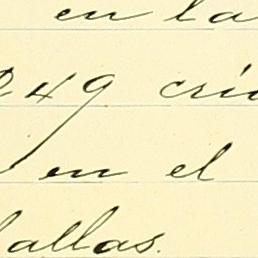 en la
249 crí
en el
allas.